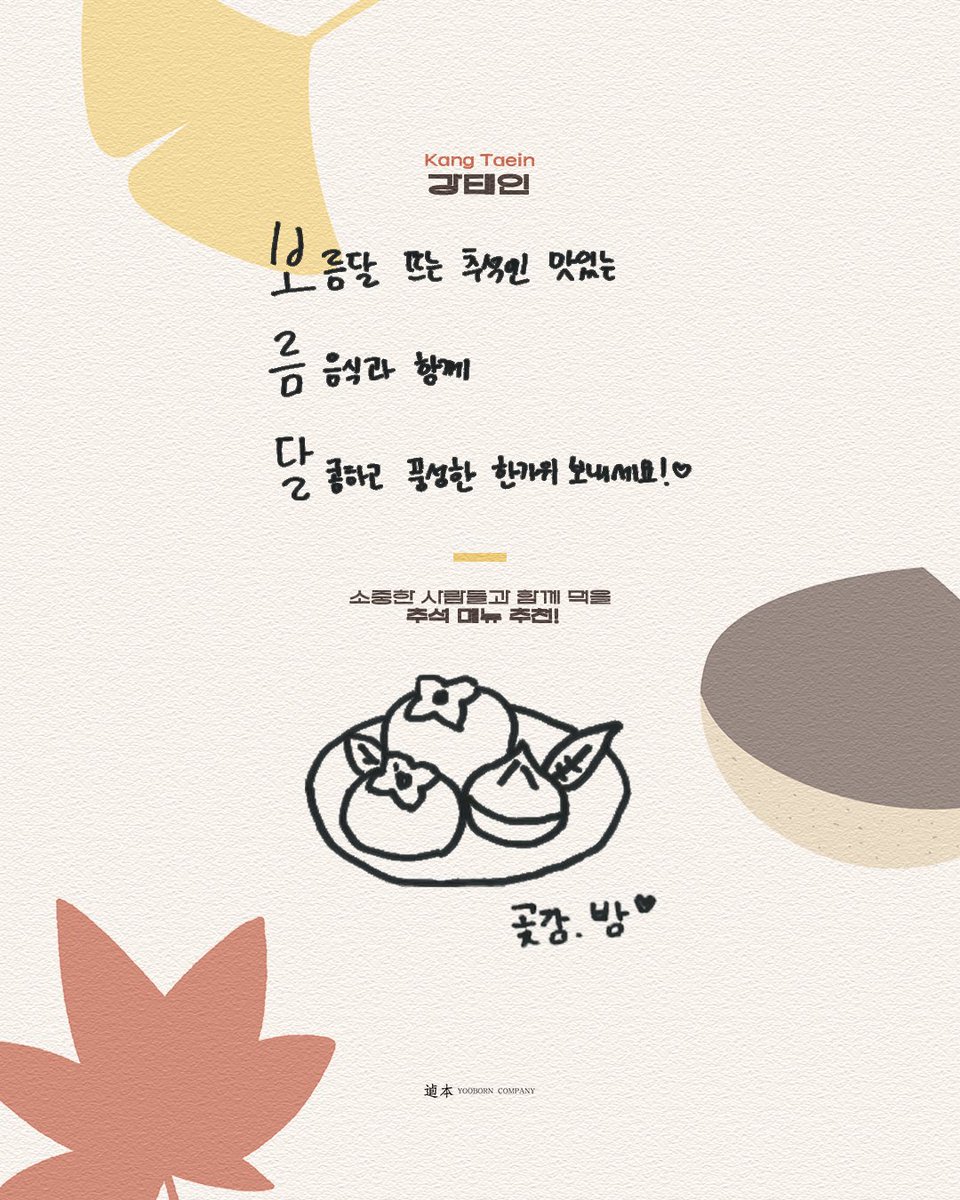 Kang Taein
강태인
보름달 뜨는 추석인 맛있는
름 음식과 함께
달콤하고 풍성한 한가위 보내세요!♡
소중한 사람들과 함께 먹을
추석 메뉴 추천!
곶감. 밤♥
逌本 YOOBORN COMPANY